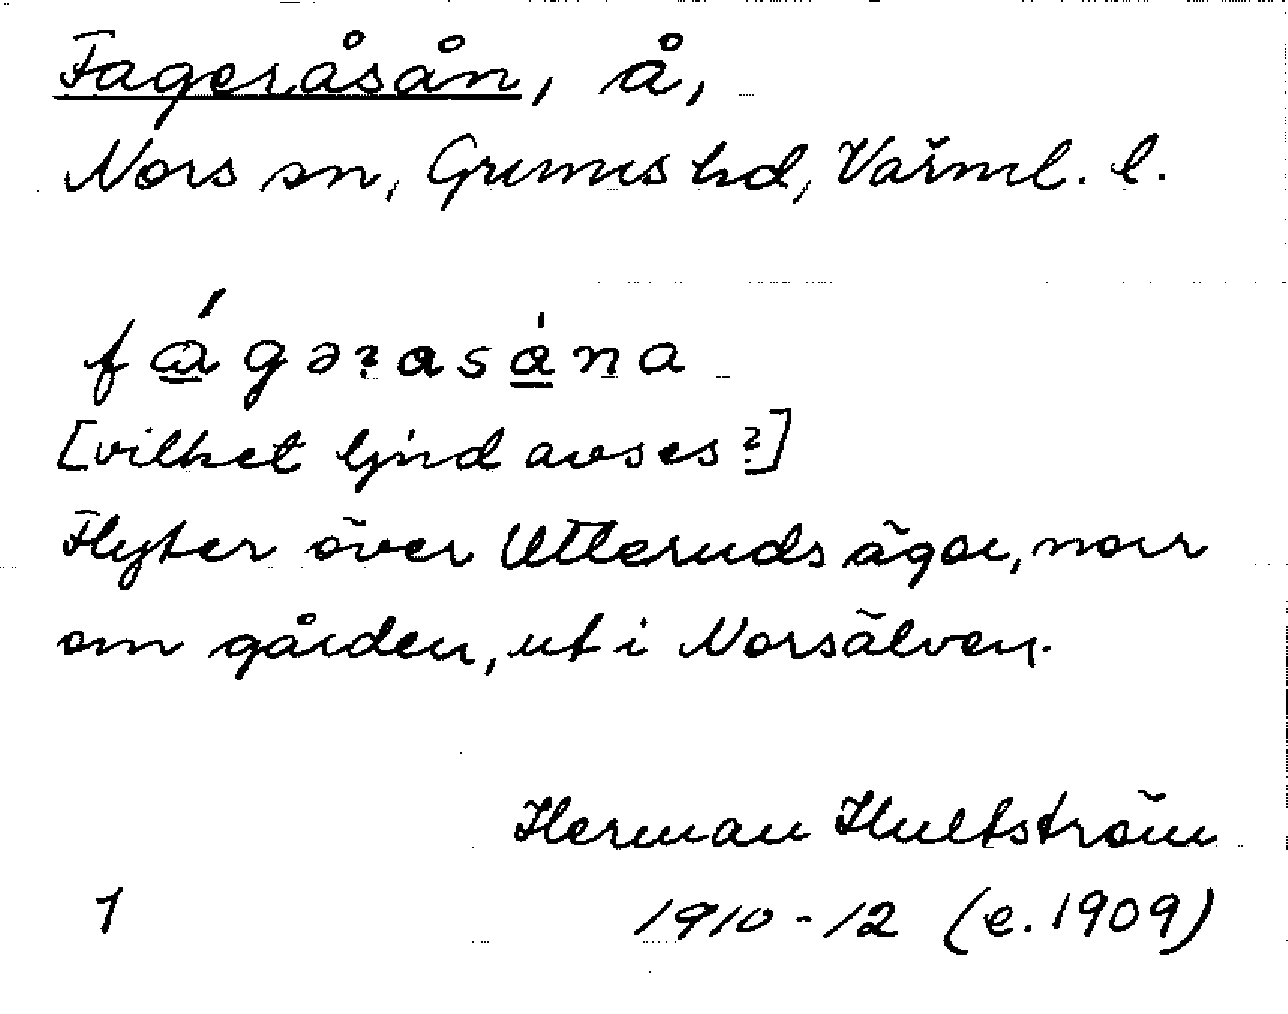 Fageråsån, å,
Nors sn, Grums hd, Värml. l.
fágəꝛasána
[vilket ljud avses?]
Flyter över Utteruds ägor, norr
om gården, ut i Norsälven.
Herman Hultström
1 1910-12 (e. 1909)